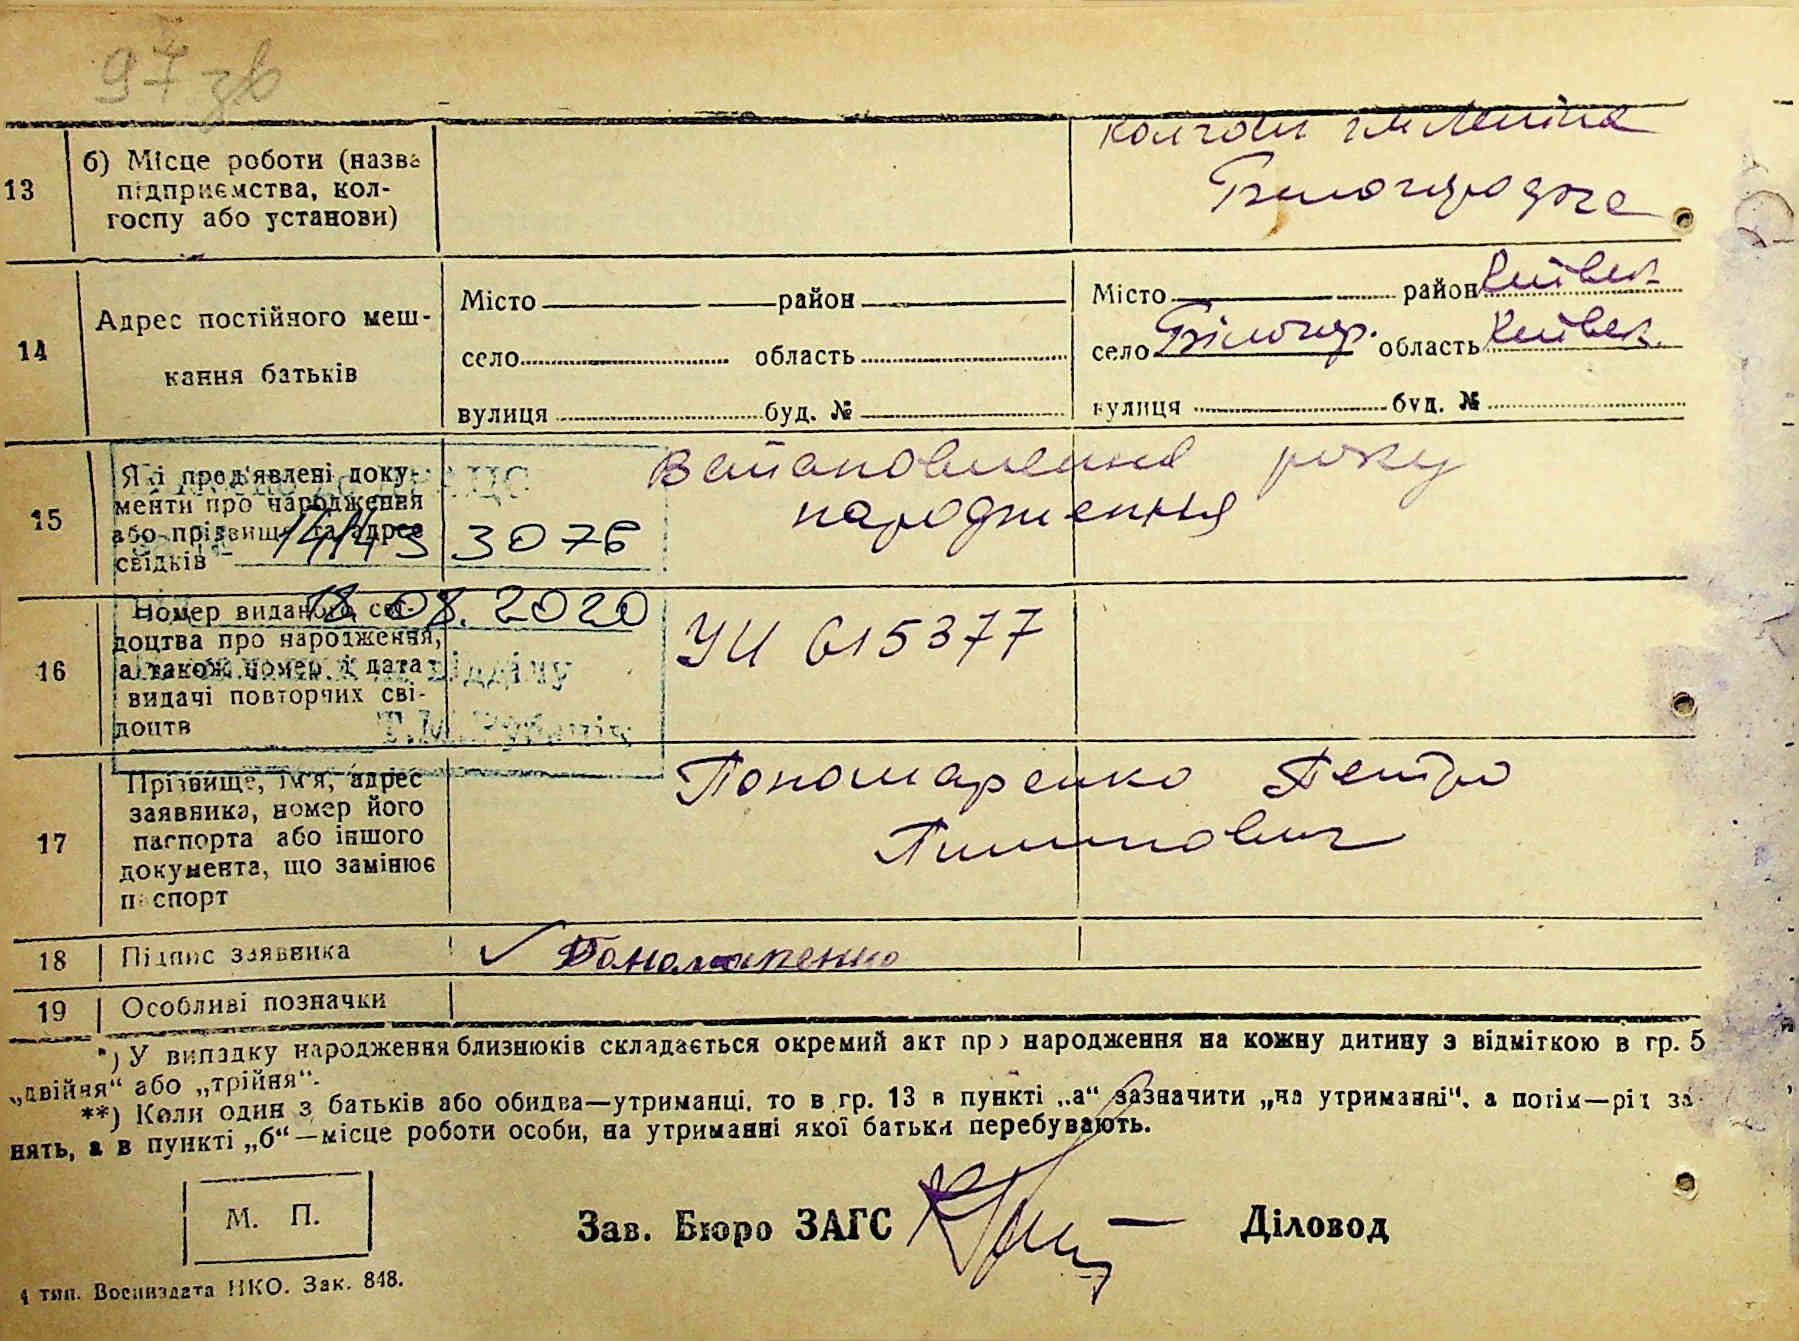 97 зв
13
б) Місце роботи (назва
підприємства, кол-
госпу або установи)
колгосп ім Леніна
Білогородка
14
Адрес постійного меш-
кання батьків
Місто район
село область
вулиця буд. №
Місто район Київськ
село Білогор. область Київськ.
вулиця буд. №
15
Які пред'явлені доку-
менти про народження
або прізвище та адрес
свідків
Встановлення року
народження
3076
18.08.2020
16
Номер виданого сві-
доцтва про народження,
а також номер і дата
видачі повторних сві-
доцтв
відділу
УИ 615377
17
Прізвище, ім'я, адрес
заявника, номер його
паспорта або іншого
документа, що замінює
паспорт
Пономаренко Петро
Пилипович
18
Підпис заявника
Пономаренко
19
Особливі позначки
*) У випадку народження близнюків складається окремий акт про народження на кожну дитину з відміткою в гр. 5
„двійня“ або „трійня“.
**) Коли один з батьків або обидва—утриманці, то в гр. 13 в пункті „а“ зазначити „на утриманні“, а потім—рід за-
нять, а в пункті „б“—місце роботи особи, на утриманні якої батьки перебувають.
М. П.
Зав. Бюро ЗАГС
Діловод
4 тип. Воениздата НКО. Зак. 848.